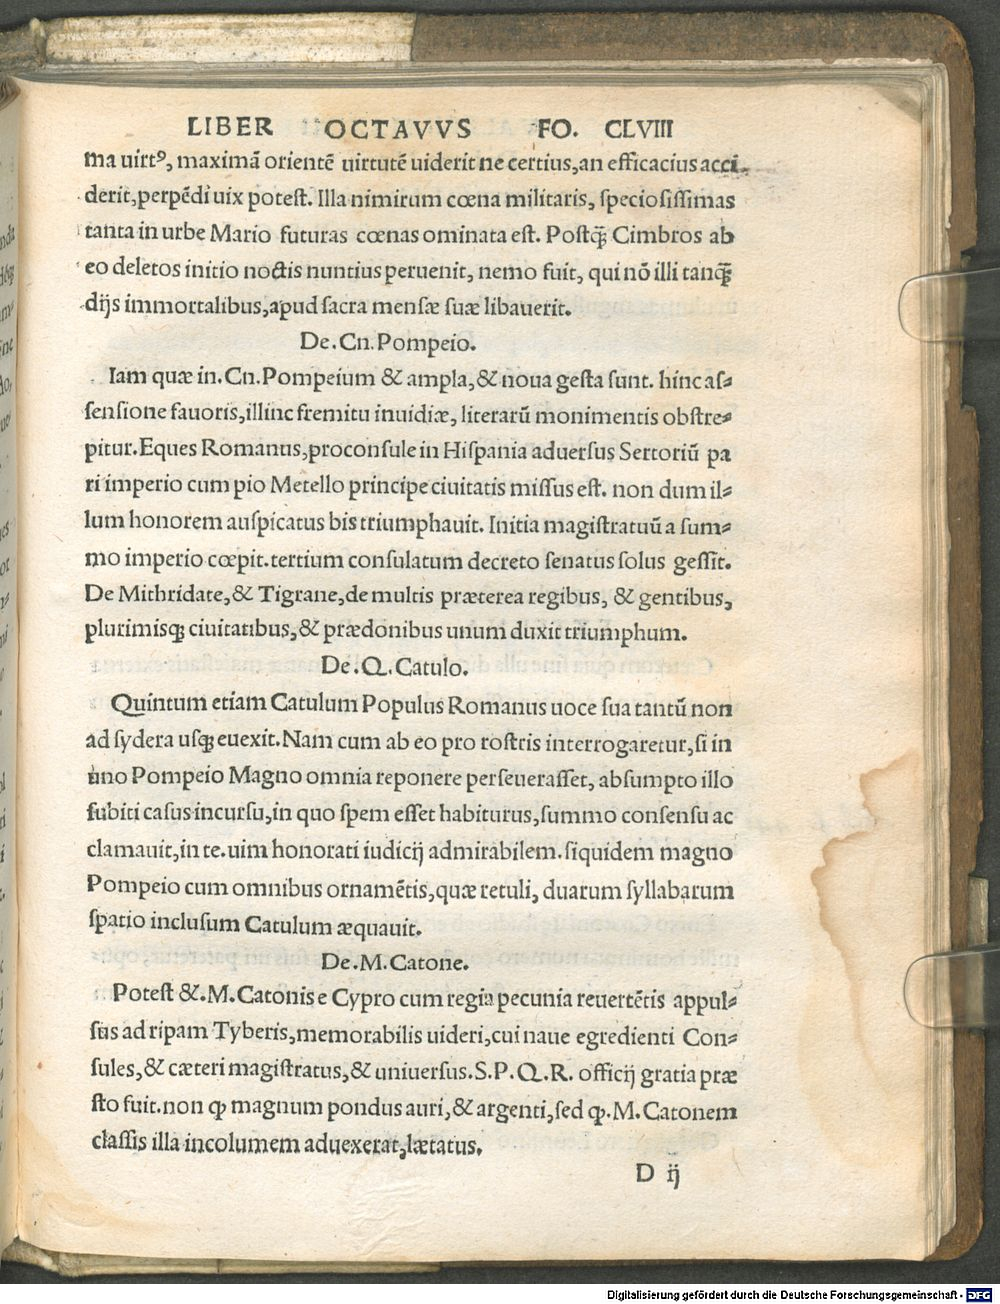 LIBER OCTAVVS FO. CLVIII
ma uirtꝰ, maximā orientē uirtutē uiderit ne certius, an efficacius acci
derit, perpēdi uix potest. Illa nimirum cœna militaris, speciosissimas
tanta in urbe Mario futuras cœnas ominata est. Postq̄ Cimbros ab
eo deletos initio noctis nuntius peruenit, nemo fuit, qui nō illi tanq̄
dijs immortalibus, apud sacra mensæ suæ libauerit.
De. Cn. Pompeio.
Iam quæ in. Cn. Pompeium & ampla, & noua gesta sunt. hinc as⸗
sensione fauoris, illinc fremitu inuidiæ, literarū monimentis obstre⸗
pitur. Eques Romanus, proconsule in Hispania aduersus Sertoriū pa
ri imperio cum pio Metello principe ciuitatis missus est. non dum il⸗
lum honorem auspicatus bis triumphauit. Initia magistratuū a sum⸗
mo imperio cœpit. tertium consulatum decreto senatus solus gessit.
De Mithridate, & Tigrane, de multis præterea regibus, & gentibus,
plurimisqꝫ ciuitatibus, & prædonibus unum duxit triumphum.
De. Q. Catulo.
Quintum etiam Catulum Populus Romanus uoce sua tantū non
ad sydera usqꝫ euexit. Nam cum ab eo pro rostris interrogaretur, si in
uno Pompeio Magno omnia reponere perseuerasset, absumpto illo
subiti casus incursu, in quo spem esset habiturus, summo consensu ac
clamauit, in te. uim honorati iudicij admirabilem. siquidem magno
Pompeio cum omnibus ornamētis, quæ retuli, duarum syllabarum
spatio inclusum Catulum æquauit.
De. M. Catone.
Potest &. M. Catonis e Cypro cum regia pecunia reuertētis appul⸗
sus ad ripam Tyberis, memorabilis uideri, cui naue egredienti Con⸗
sules, & cæteri magistratus, & uniuersus. S. P. Q. R. officij gratia præ
sto fuit. non ꝙ magnum pondus auri, & argenti, sed ꝙ. M. Catonem
classis illa incolumem aduexerat, lætatus.
D ij
Digitalisierung gefördert durch die Deutsche Forschungsgemeinschaft - DFG